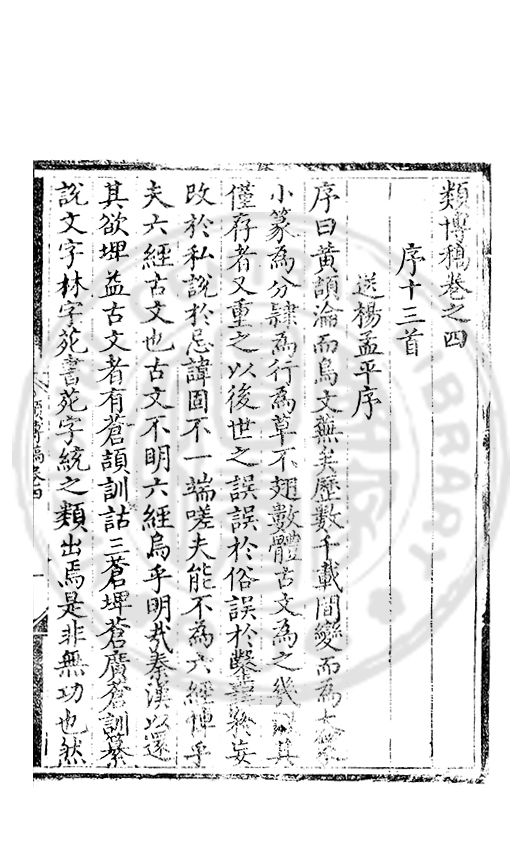 類博稿卷之四
序十三首
送楊孟平序
序曰黃頡淪而鳥文無矣歷數千載間變而為大
小篆為分隸為行為草不翅數體古文為之幾其
僅存者又重之以後世之誤誤於俗誤於鑿妄
改於私說於忌諱固不一端嗟夫能不為六經俥乎
夫六經古文也古文不明六經烏乎明哉秦漢以還
其欲埤益古文者有蒼頡訓詁三蒼埤蒼廣蒼訓纂
說文字林字苑書苑字統之類出焉是非無功也然